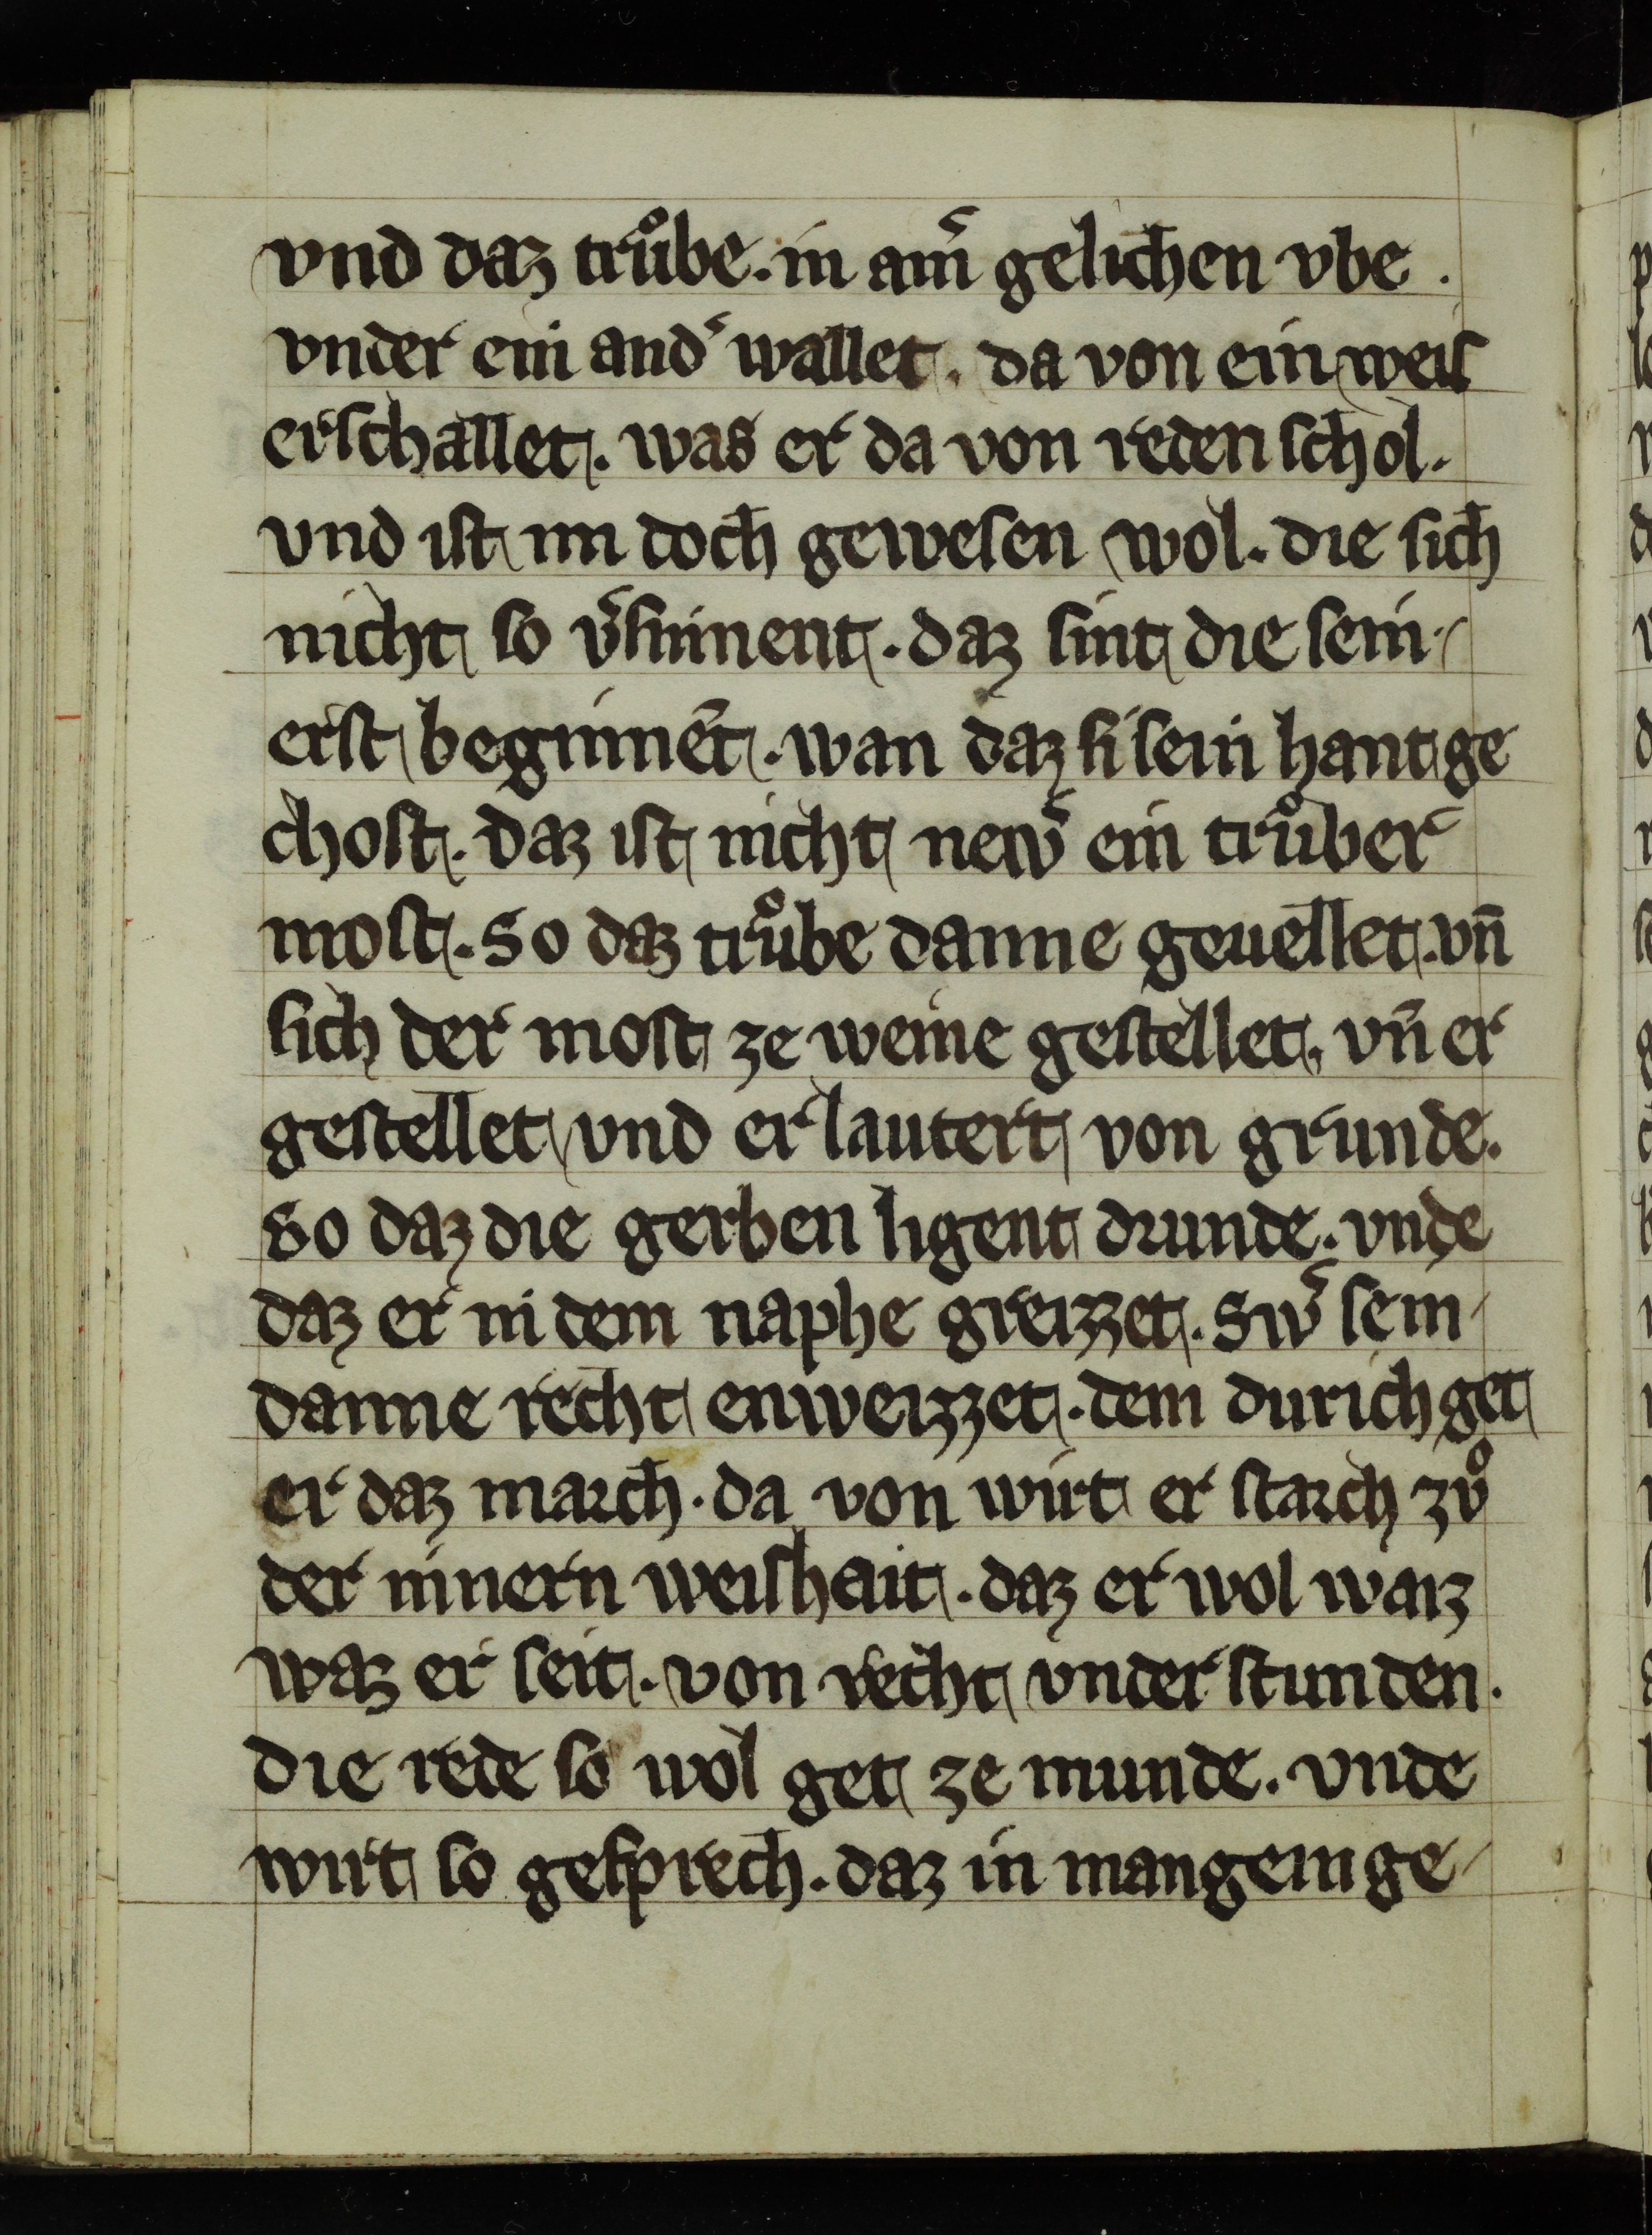 vnd daz trůbe. in am̄ gelichen vbe .
vnder ein and͛ wallet. da von ein weiſ
erſchallet. was er da von reden ſchol.
vnd iſt im doch geweſen wol. die ſich
nicht ſo v͛ſinnent. daz ſint die ſein
erſt beginnēt. wan daz ſi ſein hant ge
choſt. daz iſt nicht new͛ ein trůber
moſt. So daz trůbe danne geuellet. vn̄
ſich der moſt ze weine geſtellet. vn̄ er
geſtellet vnd er lautert von grunde.
So daz die gerben ligent drunde. vnde
daz er in dem naphe greizzet. Sw͛ ſein
danne recht enweizzet. dem durich get
er daz march. da von wirt er ſtarch zů
der innern weiſhait. daz er wol waiz
waz er ſeit. von recht vnder ſtunden.
die rede ſo wol get ze munde. vnde
wirt ſo geſprech. daz in mangeinge